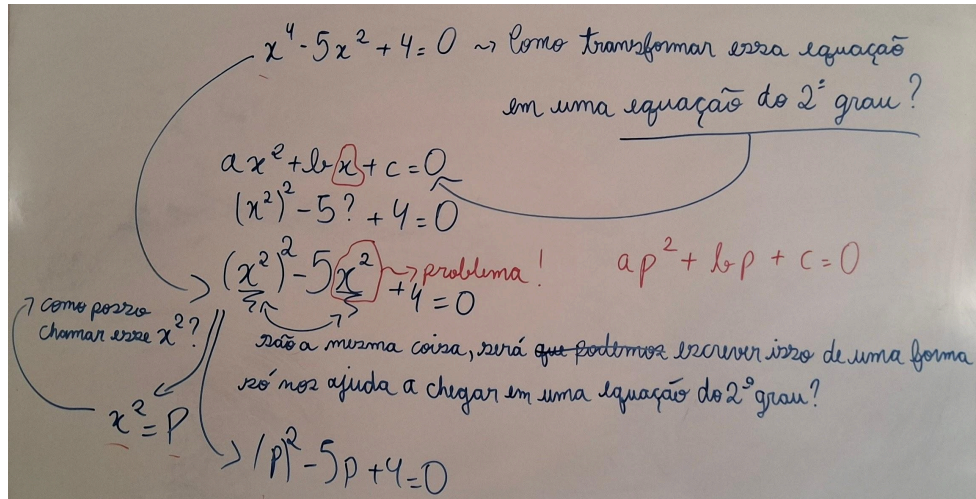 x⁴ - 5x² + 4 = 0 ~> Como transformar essa equação
em uma equação do 2º grau?
ax² + bx + c = 0
(x²)² - 5? + 4 = 0
(x²)² - 5x² + 4 = 0 ~> problema!
ap² + bp + c = 0
como posso
chamar esse x²?
são a mesma coisa, será que podemos escrever isso de uma forma
só nos ajuda a chegar em uma equação do 2º grau?
x² = P
(p)² - 5p + 4 = 0